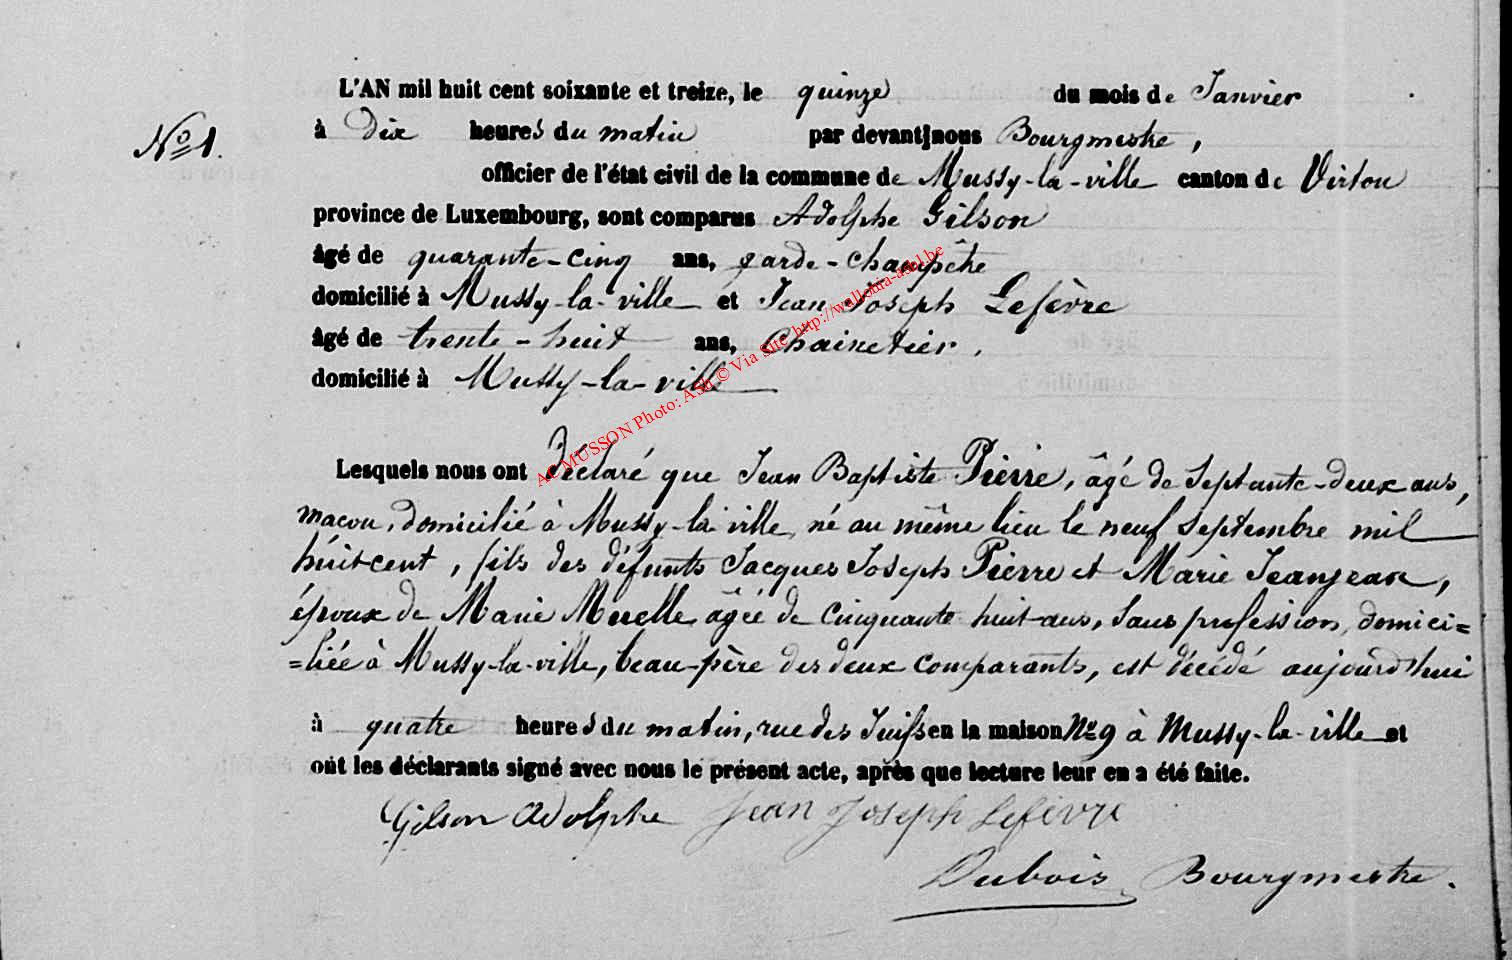 L'AN mil huit cent soixante et treize, le quinze du mois de Janvier
No 1. à dix heures du matin par devant nous Bourgmestre,
officier de l'état civil de la commune de Mussy-la-ville canton de Virton
province de Luxembourg, sont comparus Adolphe Gilson
âgé de quarante-cinq ans, garde-champêtre
domicilié à Mussy-la-ville et Jean Joseph Lefèvre
âgé de trente-huit ans, Chainetier,
domicilié à Mussy-la-ville
AC MUSSON Photo: ASh © Via Site http://wallonia-asbl.be
Lesquels nous ont déclaré que Jean Baptiste Pierre, âgé de Septante-deux ans,
macon, domicilié à Mussy-la ville, né au même lieu le neuf Septembre mil
huit-cent, fils des défunts Jacques Joseph Pierre et Marie Jeanjean,
époux de Marie Muelle âgée de Cinquante huit-ans, Sans profession, domici=
=liée à Mussy-la-ville, beau-père des deux Comparants, est décédé aujourd'hui
à quatre heures du matin, rue des Juifs en la maison No 9 à Mussy-la-ville et
ont les déclarants signé avec nous le présent acte, après que lecture leur en a été faite.
Gilson Adolphe Jean Joseph Lefèvre
Dubois Bourgmestre.